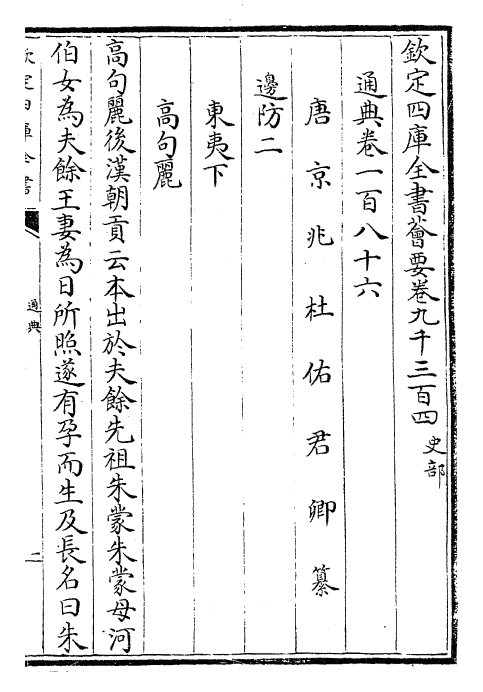 欽定四庫全書薈要卷九千三百四史部
通典卷一百八十六
唐京兆杜佑君卿纂
邊防二
東夷下
高句麗
高句麗後漢朝貢云本出於夫餘先祖朱蒙朱蒙母河
伯女為夫餘王妻為日所照遂有孕而生及長名曰朱
欽定四庫全書
通典